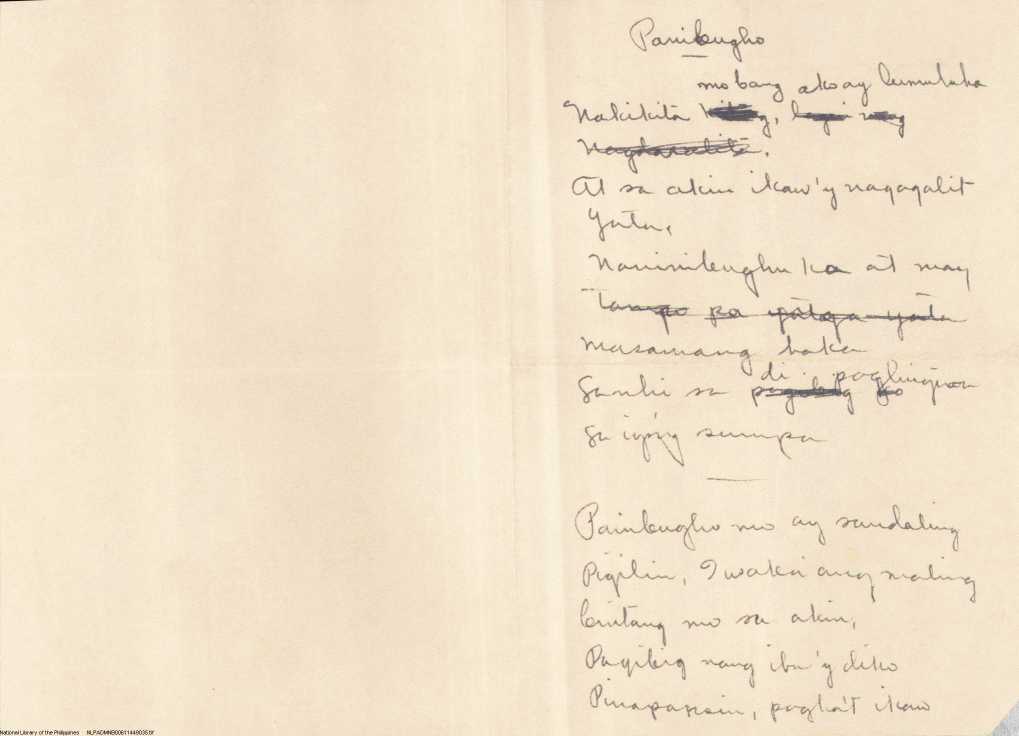 Panibugho
mo bang ako ay lumuluha
Nakikita
At sa akin ikaw'y nagagalit
Yata,
Naninibughu ka at may
tampo pa yata
masamang haka
di paglingon
Sanhi sa
Sa iyóng sumpa
Panibugho mo ay sandaling
Pigilin, Iwaksi ang maling
bintang mo sa akin,
Pagibig nang iba'y diko
Pinapansin, pagka't ikaw
National Library of the Philippines NLPADMNB00611449035.tif